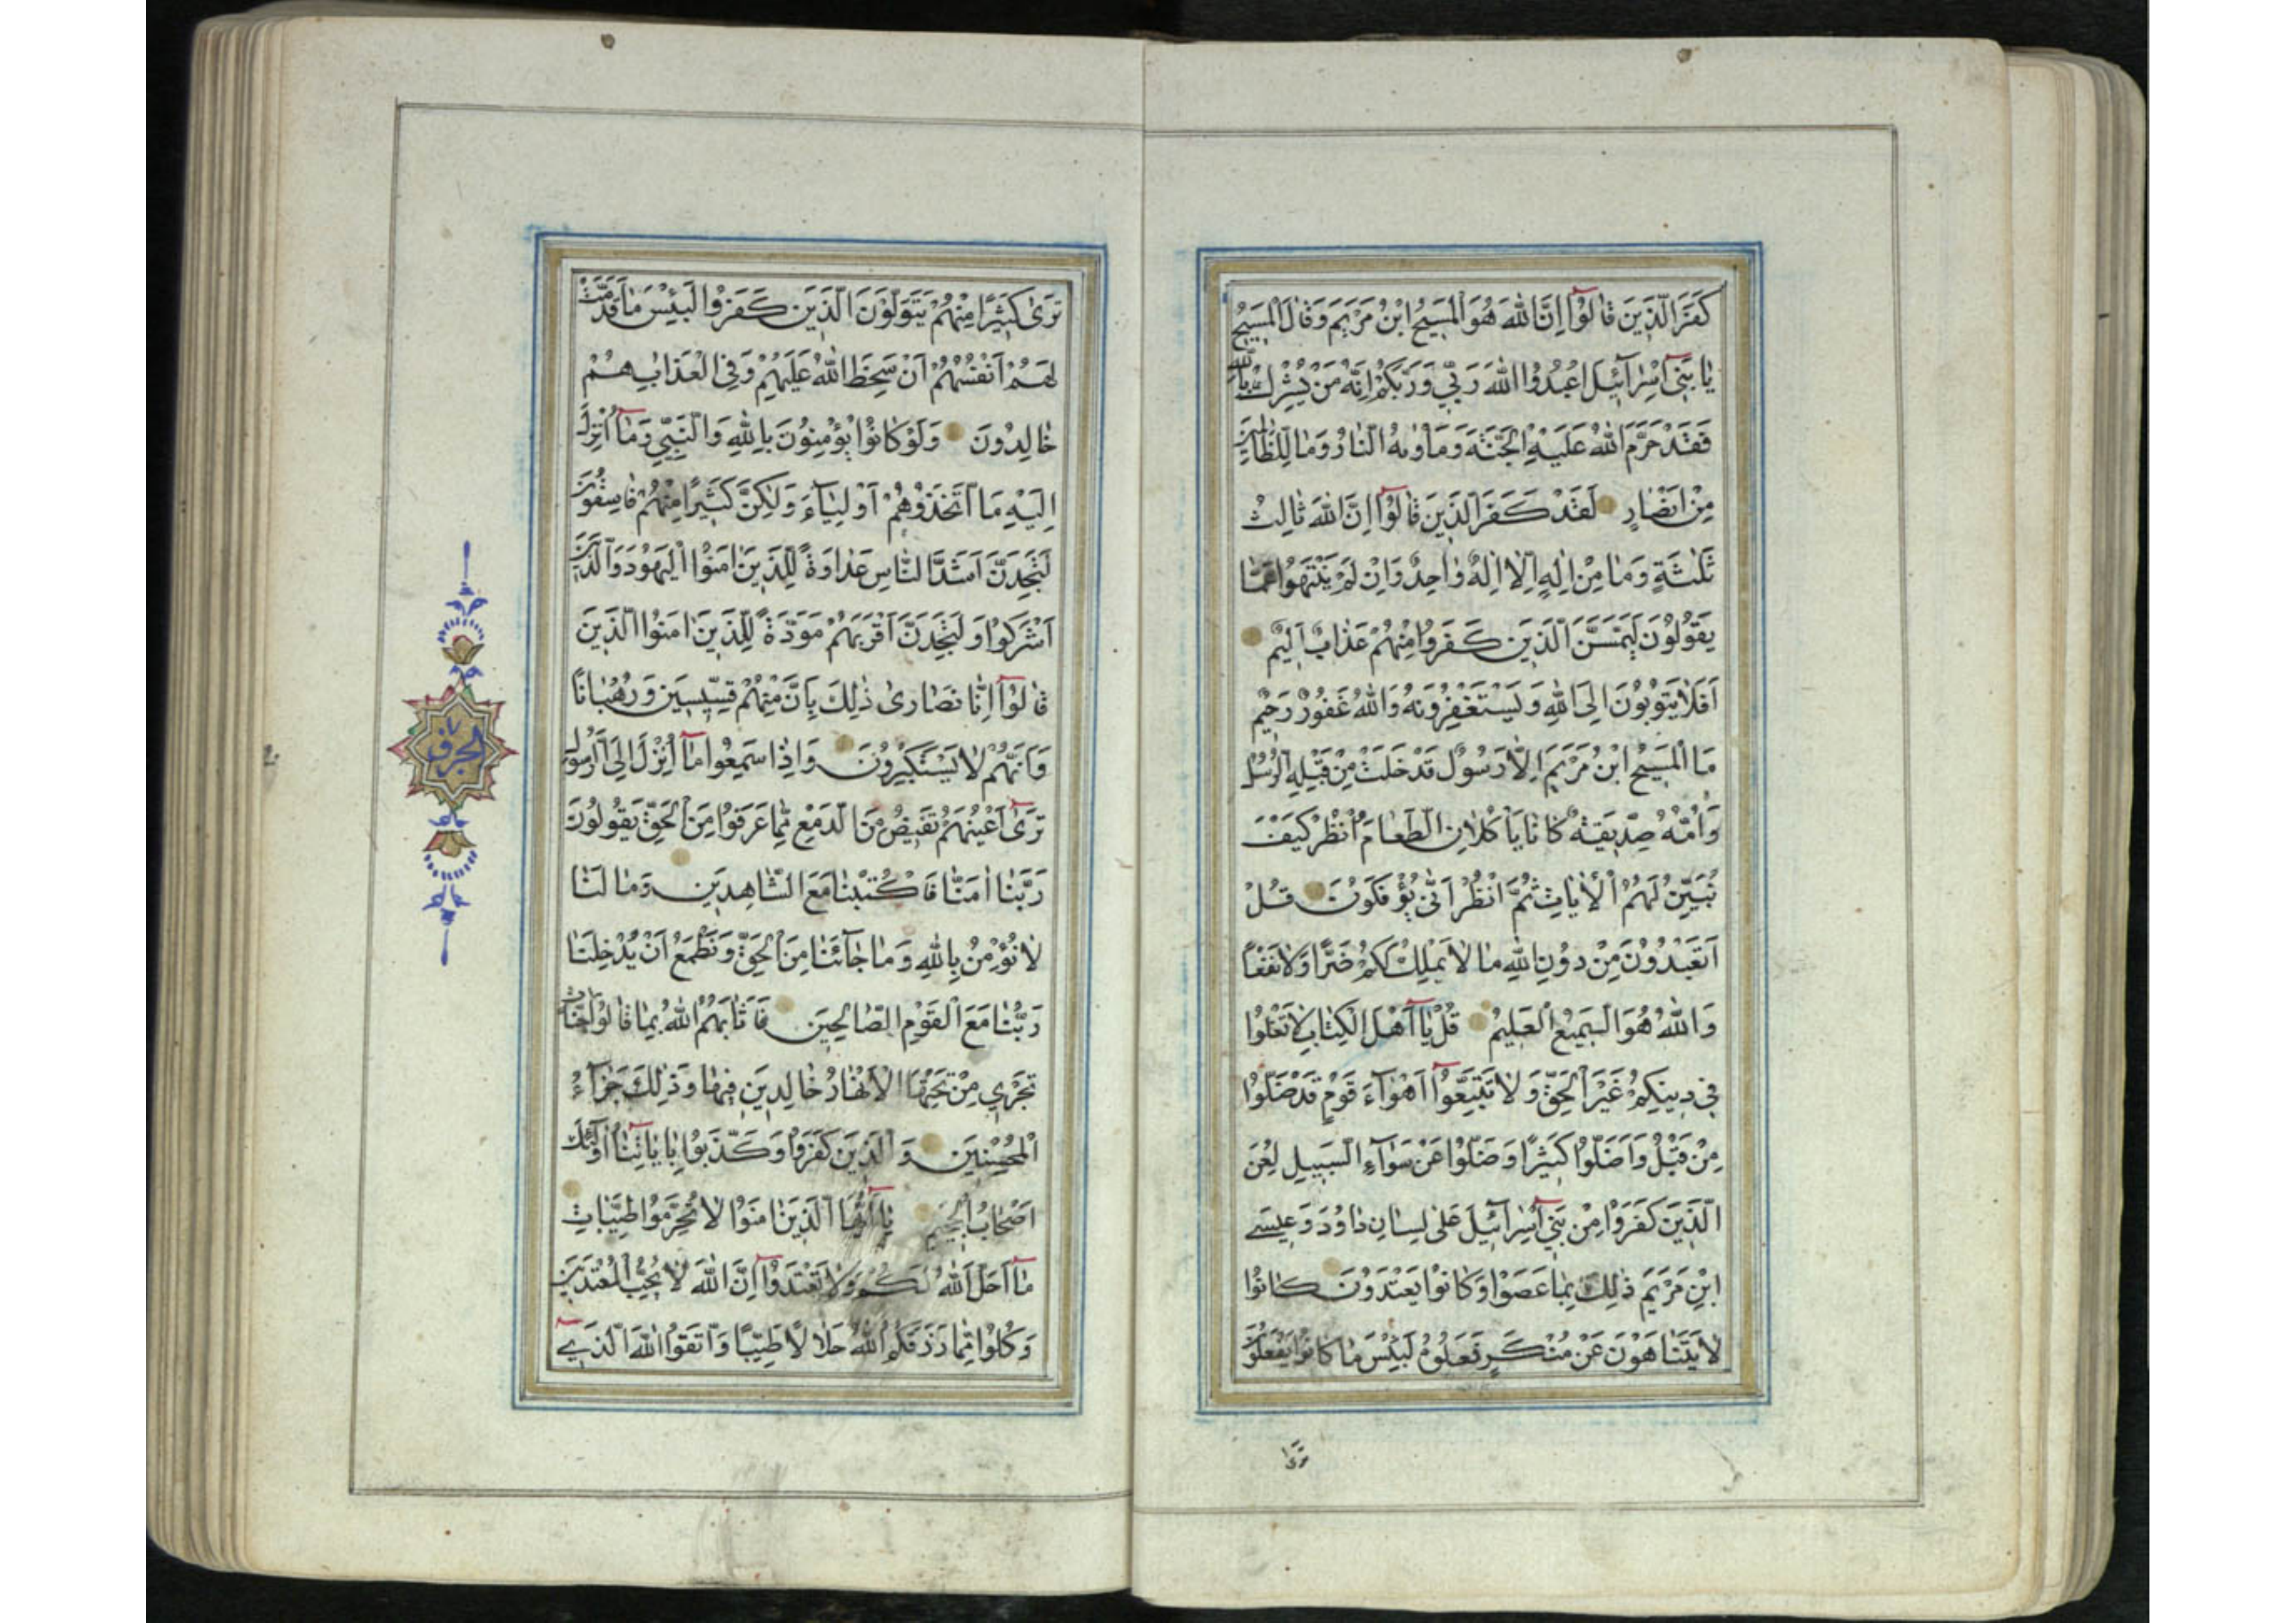 كَفَرَ الَّذِينَ قَالُوٓا اِنَّ اللّٰهَ هُوَ الْمَسِيحُ ابْنُ مَرْيَمَ وَقَالَ الْمَسِيحُ
يَا بَنِىٓ اِسْرَآئِيلَ اعْبُدُوا اللّٰهَ رَبِّي وَرَبَّكُمْ اِنَّهُ مَنْ يُشْرِكْ بِاللّٰهِ
فَقَدْ حَرَّمَ اللّٰهُ عَلَيْهِ الْجَنَّةَ وَمَاْوٰيهُ النَّارُ وَمَا لِلظَّالِمِينَ
مِنْ اَنْصَارٍ لَقَدْ كَفَرَ الَّذِينَ قَالُوٓا اِنَّ اللّٰهَ ثَالِثُ
ثَلٰثَةٍ وَمَا مِنْ اِلٰهٍ اِلَّا اِلٰهٌ وَاحِدٌ وَاِنْ لَمْ يَنْتَهُوا عَمَّا
يَقُولُونَ لَيَمَسَّنَّ الَّذِينَ كَفَرُوا مِنْهُمْ عَذَابٌ اَلِيمٌ
اَفَلَا يَتُوبُونَ اِلَى اللّٰهِ وَيَسْتَغْفِرُونَهُ وَاللّٰهُ غَفُورٌ رَحِيمٌ
مَا الْمَسِيحُ ابْنُ مَرْيَمَ اِلَّا رَسُولٌ قَدْ خَلَتْ مِنْ قَبْلِهِ الرُّسُلُ
وَاُمُّهُ صِدِّيقَةٌ كَانَا يَاْكُلَانِ الطَّعَامَ اُنْظُرْ كَيْفَ
نُبَيِّنُ لَهُمُ الْاٰيَاتِ ثُمَّ انْظُرْ اَنّٰى يُؤْفَكُونَ قُلْ
اَتَعْبُدُونَ مِنْ دُونِ اللّٰهِ مَا لَا يَمْلِكُ لَكُمْ ضَرًّا وَلَا نَفْعًا
وَاللّٰهُ هُوَ السَّمِيعُ الْعَلِيمُ قُلْ يَآ اَهْلَ الْكِتَابِ لَا تَغْلُوا
فِي دِينِكُمْ غَيْرَ الْحَقِّ وَلَا تَتَّبِعُوٓا اَهْوَآءَ قَوْمٍ قَدْ ضَلُّوا
مِنْ قَبْلُ وَاَضَلُّوا كَثِيرًا وَضَلُّوا عَنْ سَوَآءِ السَّبِيلِ لُعِنَ
الَّذِينَ كَفَرُوا مِنْ بَنِيٓ اِسْرَآئِيلَ عَلٰى لِسَانِ دَاوُدَ وَعِيسَى
ابْنِ مَرْيَمَ ذٰلِكَ بِمَا عَصَوْا وَكَانُوا يَعْتَدُونَ كَانُوا
لَا يَتَنَاهَوْنَ عَنْ مُنْكَرٍ فَعَلُوهُ لَبِئْسَ مَا كَانُوا يَفْعَلُونَ
تَرٰى
تَرٰى كَثِيرًا مِنْهُمْ يَتَوَلَّوْنَ الَّذِينَ كَفَرُوا لَبِئْسَ مَا قَدَّمَتْ
لَهُمْ اَنْفُسُهُمْ اَنْ سَخِطَ اللّٰهُ عَلَيْهِمْ وَفِى الْعَذَابِ هُمْ
خَالِدُونَ وَلَوْ كَانُوا يُؤْمِنُونَ بِاللّٰهِ وَالنَّبِيِّ وَمَآ اُنْزِلَ
اِلَيْهِ مَا اتَّخَذُوهُمْ اَوْلِيَآءَ وَلٰكِنَّ كَثِيرًا مِنْهُمْ فَاسِقُونَ
لَتَجِدَنَّ اَشَدَّ النَّاسِ عَدَاوَةً لِلَّذِينَ اٰمَنُوا الْيَهُودَ وَالَّذِينَ
اَشْرَكُوا وَلَتَجِدَنَّ اَقْرَبَهُمْ مَوَدَّةً لِلَّذِينَ اٰمَنُوا الَّذِينَ
قَالُوٓا اِنَّا نَصَارٰى ذٰلِكَ بِاَنَّ مِنْهُمْ قِسِّيسِينَ وَرُهْبَانًا
وَاَنَّهُمْ لَا يَسْتَكْبِرُونَ وَاِذَا سَمِعُوا مَآ اُنْزِلَ اِلَى الرَّسُولِ
تَرٰىٓ اَعْيُنَهُمْ تَفِيضُ مِنَ الدَّمْعِ مِمَّا عَرَفُوا مِنَ الْحَقِّ يَقُولُونَ
رَبَّنَا اٰمَنَّا فَاكْتُبْنَا مَعَ الشَّاهِدِينَ وَمَا لَنَا
لَا نُؤْمِنُ بِاللّٰهِ وَمَا جَآئَنَا مِنَ الْحَقِّ وَنَطْمَعُ اَنْ يُدْخِلَنَا
رَبُّنَا مَعَ الْقَوْمِ الصَّالِحِينَ فَاَثَابَهُمُ اللّٰهُ بِمَا قَالُوا جَنَّاتٍ
تَجْرِي مِنْ تَحْتِهَا الْاَنْهَارُ خَالِدِينَ فِيهَا وَذٰلِكَ جَزَآءُ
الْمُحْسِنِينَ وَالَّذِينَ كَفَرُوا وَكَذَّبُوا بِاٰيَاتِنَآ اُولٰٓئِكَ
اَصْحَابُ الْجَحِيمِ يَآ اَيُّهَا الَّذِينَ اٰمَنُوا لَا تُحَرِّمُوا طَيِّبَاتِ
مَآ اَحَلَّ اللّٰهُ لَكُمْ وَلَا تَعْتَدُوٓا اِنَّ اللّٰهَ لَا يُحِبُّ الْمُعْتَدِينَ
وَكُلُوا مِمَّا رَزَقَكُمُ اللّٰهُ حَلَالًا طَيِّبًا وَاتَّقُوا اللّٰهَ الَّذِىٓ